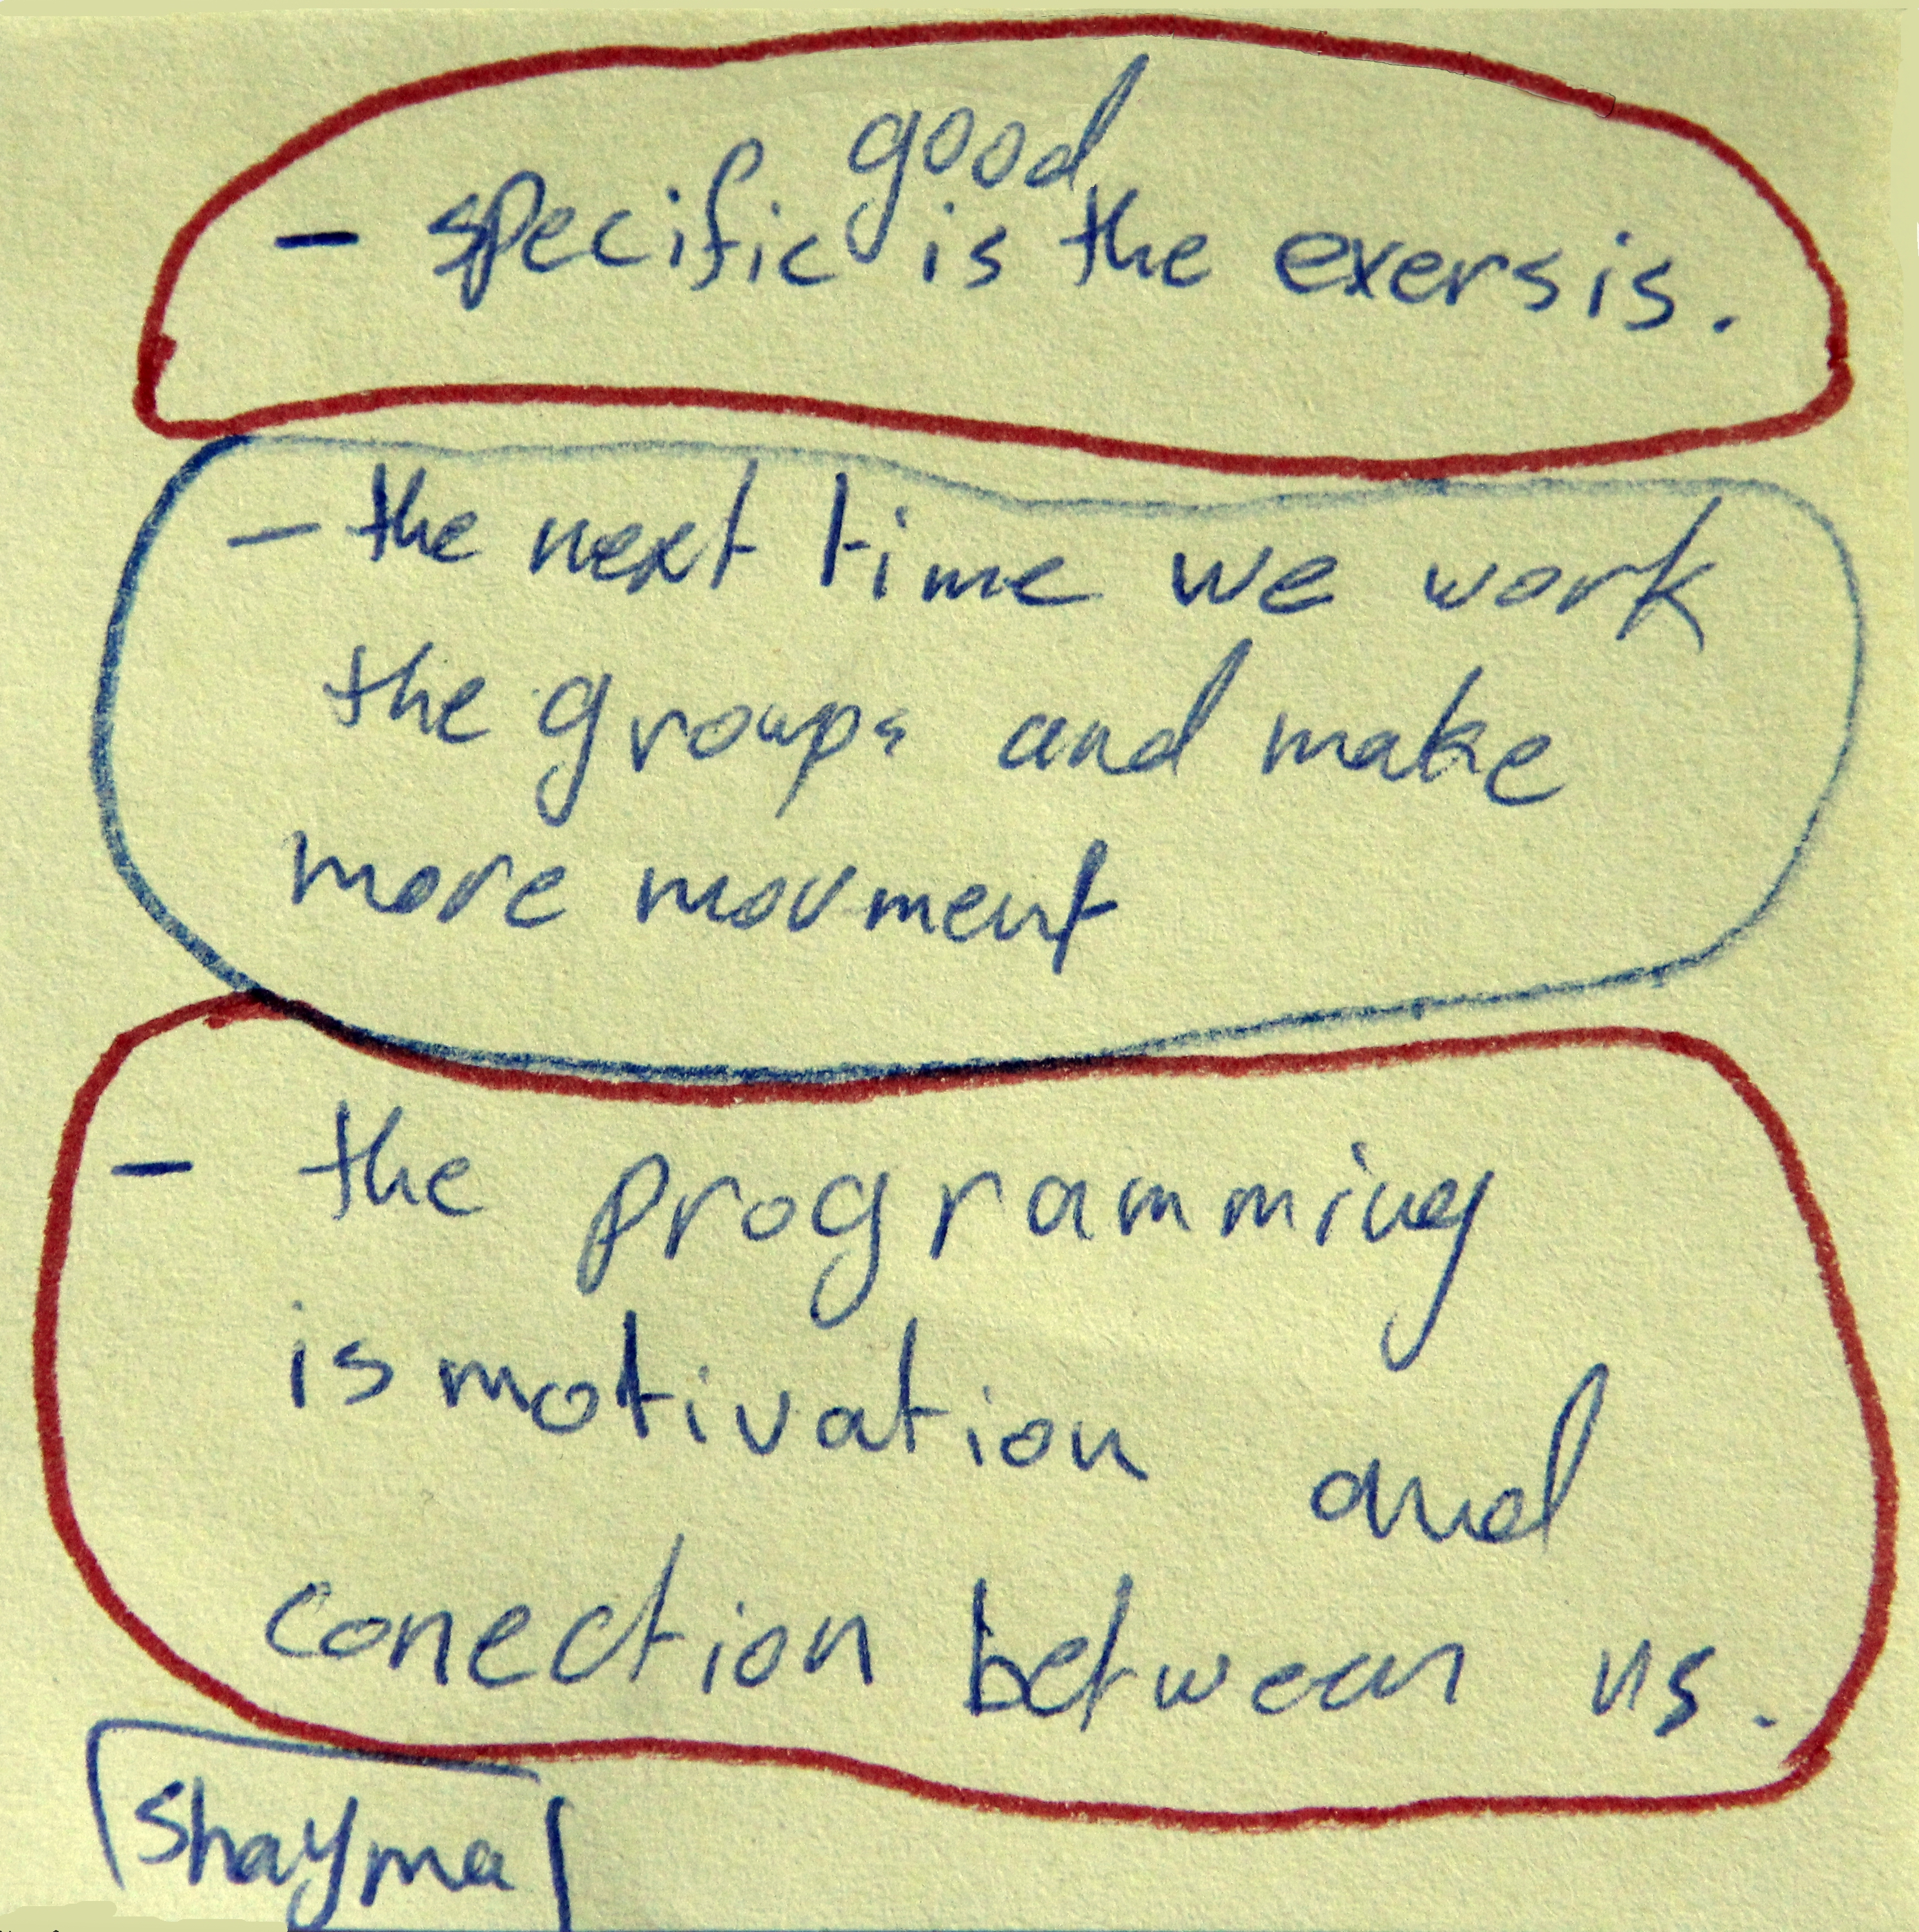 good
- specific is the exersis.
- the next time we work
the groups and make
more movment
- the programming
is motivation and
conection between us.
Shayma